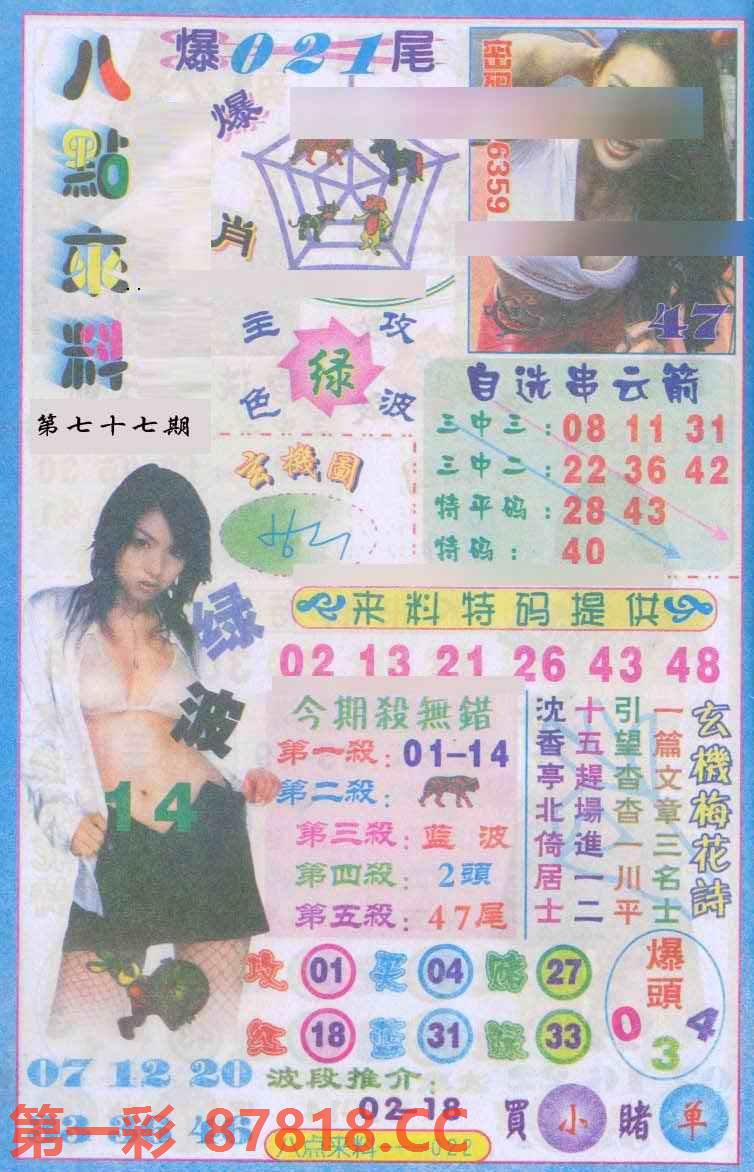 爆021尾
八點來料
爆肖
6359
47
主攻
绿
色波
第七十七期
自选串云箭
三中三：08 11 31
三中二：22 36 42
特平码：28 43
特码：40
玄機圖
绿波
14
来料特码提供
02 13 21 26 43 48
今期殺無錯
第一殺：01-14
第二殺：
第三殺：蓝波
第四殺：2頭
第五殺：47尾
玄機梅花詩
一篇文章三名士
引望杳杳一川平
十五趕場進一二
沈香亭北倚居士
攻 01 买 04 赌 27
红 18 蓝 31 绿 33
爆頭
0 3 4
07 12 20
波段推介：
02-18
買小賭单
第一彩 87818.CC
八点来料 022